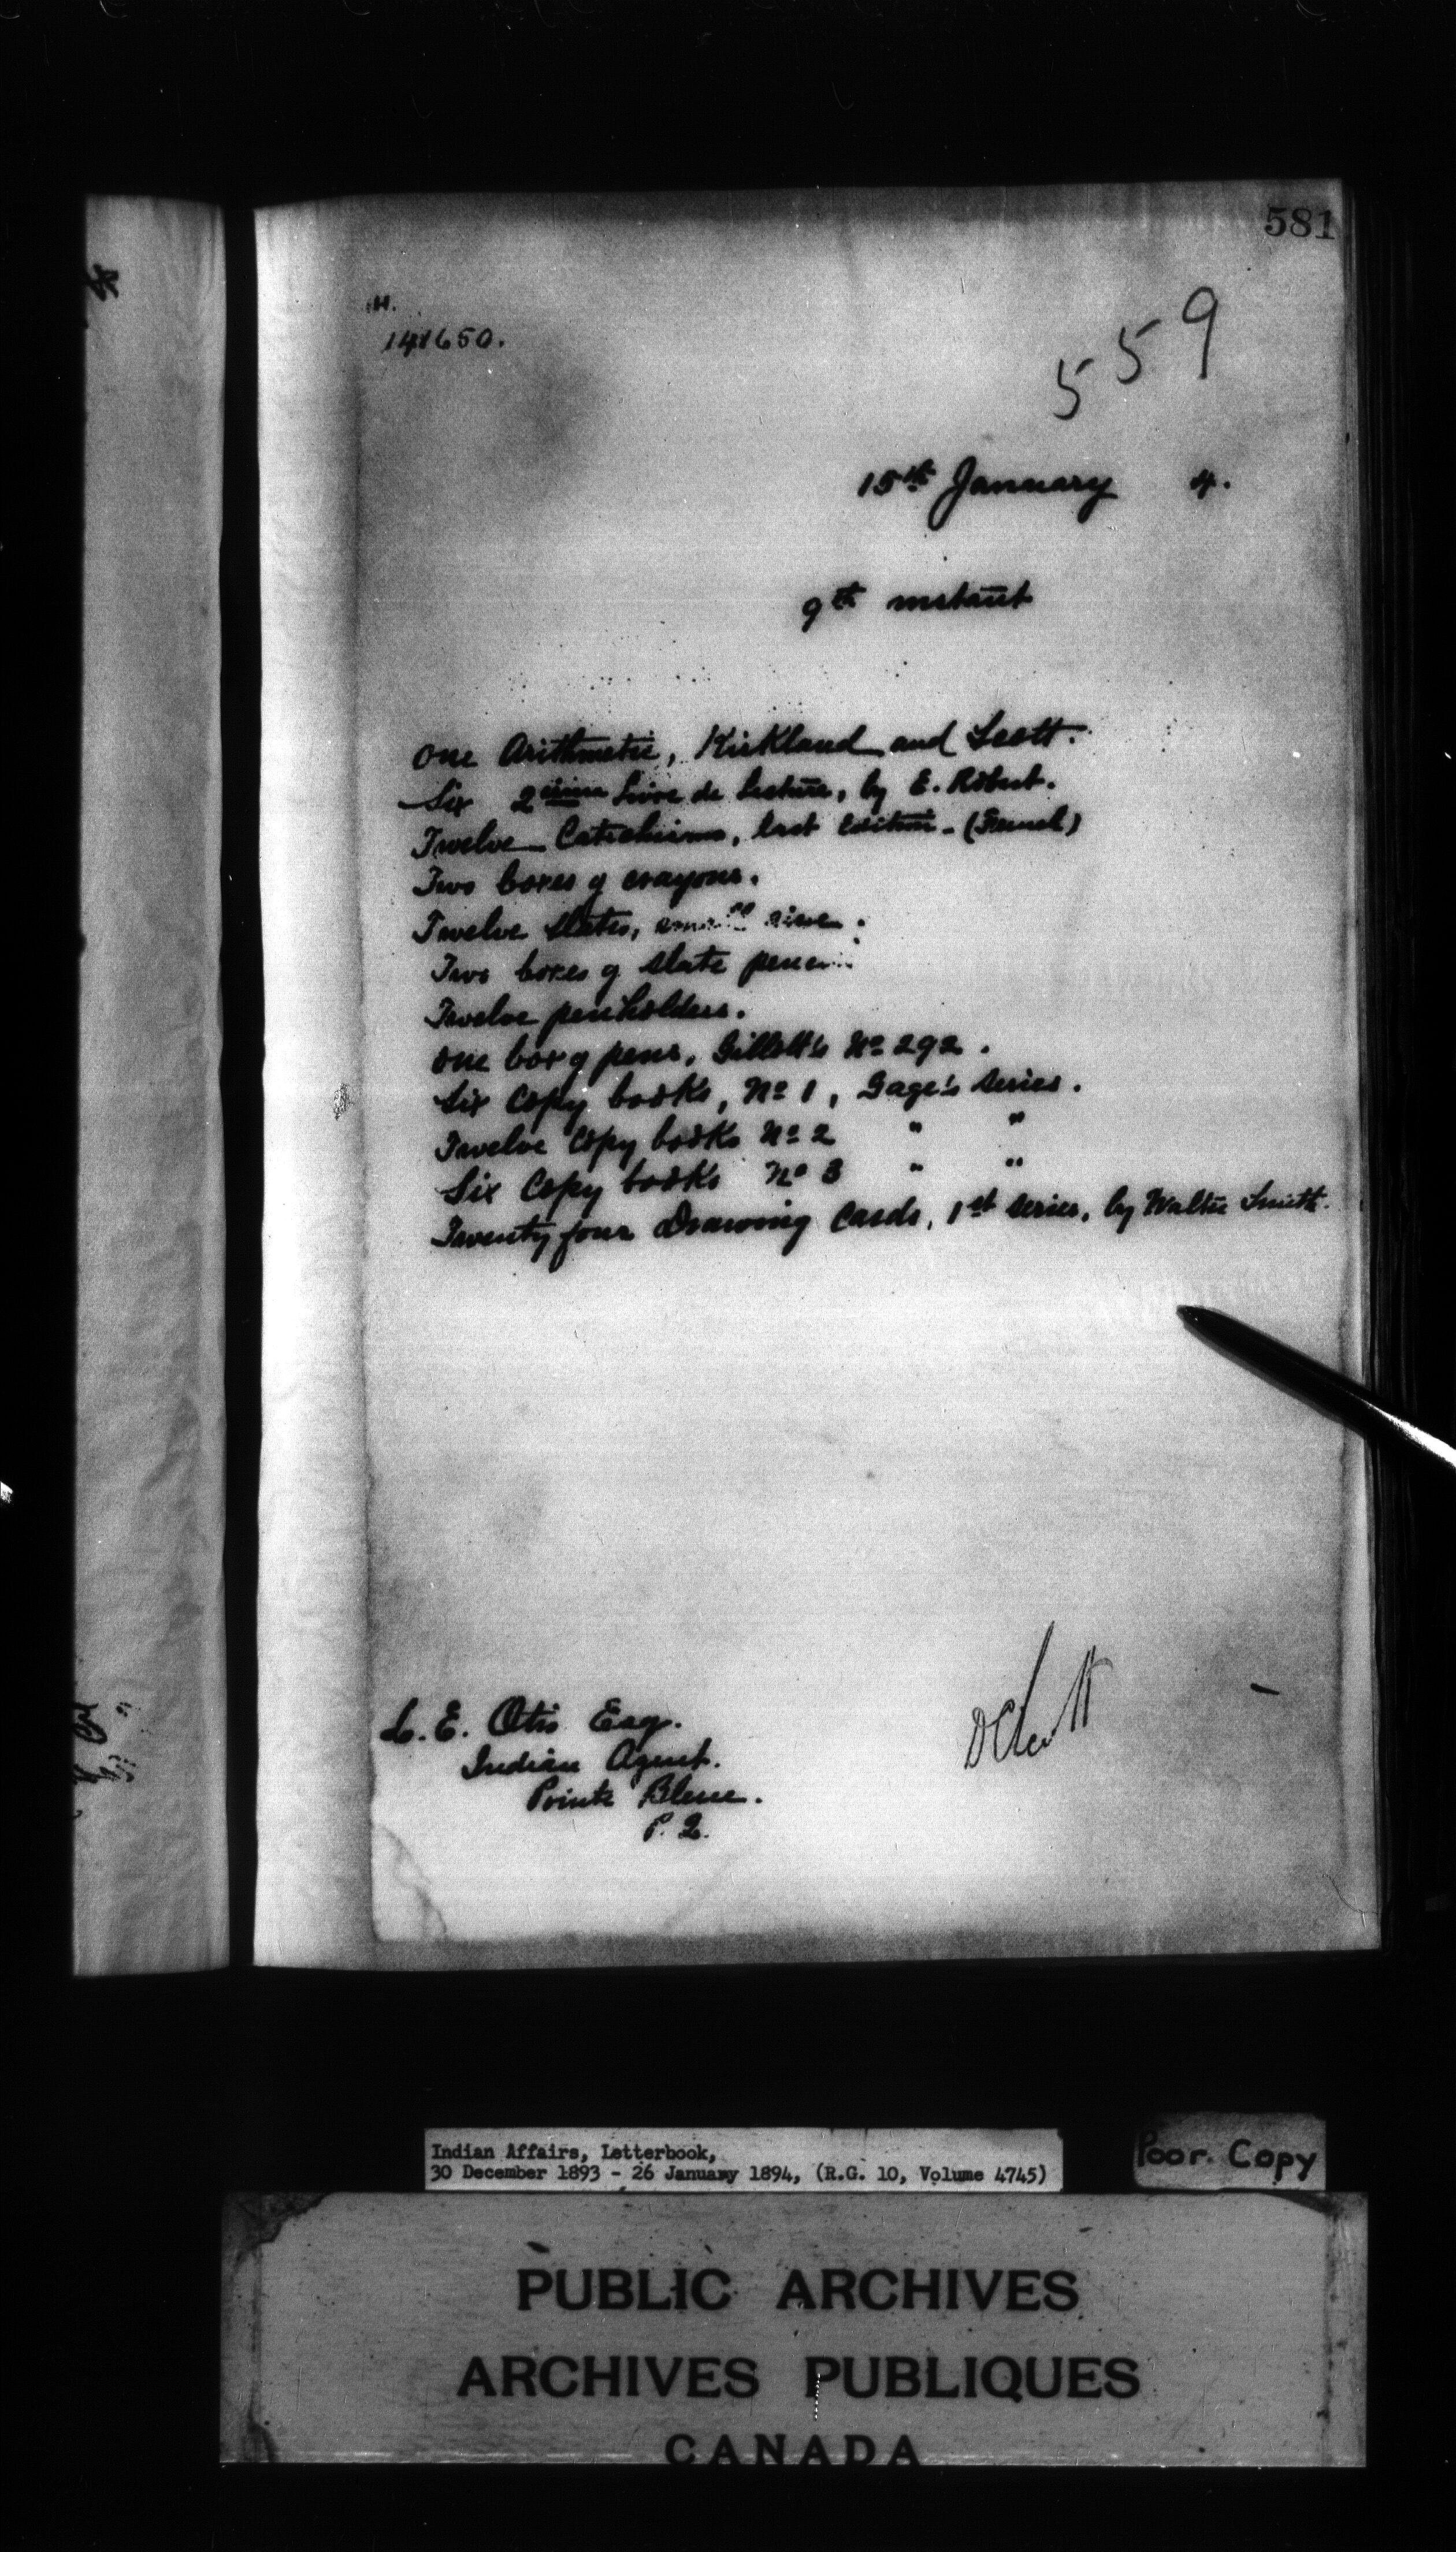 581
H.
141650.
559
15th January 4.
9th instant
One Arithmetic, Kirkland and Scott.
Six 2ième Livre de Lecture, by E. Robert.
Twelve Catechisms, last edition. (French)
Two boxes of crayons.
Twelve slates, small size.
Two boxes of slate
Twelve penholders.
One box of pens, Gillott's No 292.
Six Copy books, No 1, Gage's series.
Twelve Copy books No 2 " "
Six Copy books No 3 " "
Twenty four Drawing Cards, 1st series, by Walter Smith.
L. E. Otis Esq.
Indian Agent.
Pointe Bleue.
P. Q.
Indian Affairs, Letterbook,
30 December 1893 - 26 January 1894, (R.G. 10, Volume 4745)
Poor Copy
PUBLIC ARCHIVES
ARCHIVES PUBLIQUES
CANADA